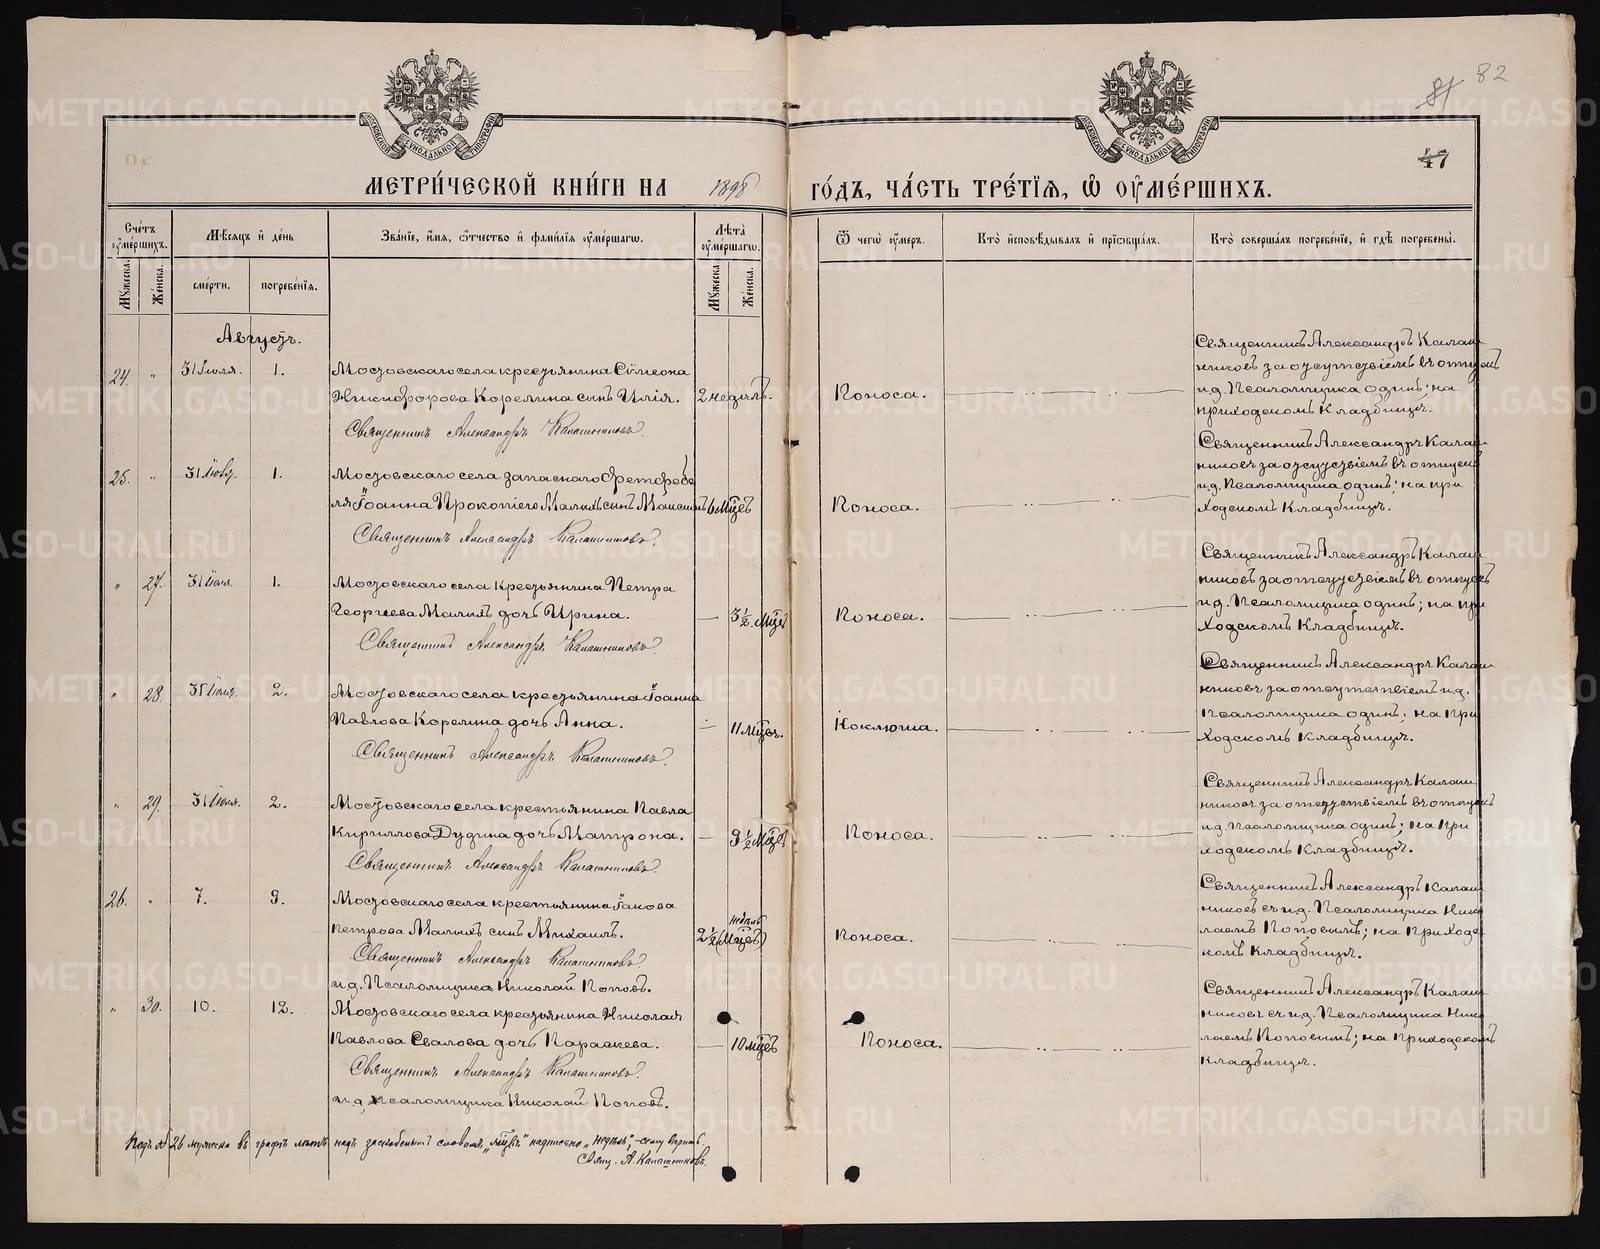 82
81
47
МЕТРИ́ЧЕСКОЙ КНИ́ГИ НА 1898 ГО́ДЪ, ЧА́СТЬ ТРЕ́ТІЯ, Ѡ ОУМЕ́РШИХЪ.
Сче́тъ оуме́ршихъ.
Мꙋжеска.
Же́нска.
Мѣ́сяцъ и де́нь
сме́рти.
погребе́нїя.
Зва́нїе, и́мя, ѻ́тчество и фами́лїя оуме́ршагѡ.
Лѣта̀ оуме́ршагѡ.
Мꙋжеска
Же́нска.
Ѿ чегѡ̀ оу́меръ.
Кто̀ исповѣ́дывалъ и прїѡбща́лъ.
Кто̀ соверша́лъ погребе́нїе, и гдѣ̀ погребены̀.
Августъ.
24. " 31 Іюля. 1. Мостовскаго села крестьянина Сѵмеона
Никифорова Корелина сынъ Илія. 2 недѣль. Поноса.
Священникъ Александръ Калашниковъ.
Священникъ Александръ Калаш
никовъ за отсутствіемъ въ отпускъ
и.д. Псаломщика одинъ; на
приходскомъ Кладбищѣ.
25. " 31 Іюля. 1. Мостовскаго села запаснаго Фельдфебе
ля Іоанна Прокопіева Малыхъ сынъ Максимъ 6 мцевъ Поноса.
Священникъ Александръ Калашниковъ.
Священникъ Александръ Калаш
никовъ за отсутствіемъ въ отпускъ
и.д. Псаломщика одинъ; на при
ходскомъ Кладбищѣ.
" 27. 31 Іюля. 1. Мостовскаго села Крестьянина Петра
Георгіева Малыхъ дочь Ирина. — 3½ мцевъ Поноса.
Священникъ Александръ Калашниковъ.
Священникъ Александръ Калаш
никовъ за отсутствіемъ въ отпускъ
и.д. Псаломщика одинъ; на при
ходскомъ Кладбищѣ.
" 28. 31 Іюля. 2. Мостовскаго села крестьянина Іоанна
Павлова Корелина дочь Анна. — 11 мцевъ. Коклюша.
Священникъ Александръ Калашниковъ.
Священникъ Александръ Калаш
никовъ за отсутствіемъ и.д.
Псаломщика одинъ; на при
ходскомъ Кладбищѣ.
" 29. 31 Іюля. 2. Мостовскаго села крестьянина Павла
Кириллова Дудина дочь Матрона. — 9½ мцевъ Поноса.
Священникъ Александръ Калашниковъ.
Священникъ Александръ Калаш
никовъ за отсутствіемъ въ отпускъ
и.д. Псаломщика одинъ; на при
ходскомъ Кладбищѣ.
26. " 7. 9. Мостовскаго села крестьянина Іакова
Петрова Малыхъ сынъ Михаилъ. 2½ недѣль (мцевъ) Поноса.
Священникъ Александръ Калашниковъ.
и.д. Псаломщика Николай Поповъ.
Священникъ Александръ Калаш
никовъ съ и.д. Псаломщика Нико
лаемъ Поповымъ; на приходс
комъ Кладбищѣ.
" 30. 10. 12. Мостовскаго села крестьянина Николая
Павлова Свалова дочь Параскева. — 10 мцевъ Поноса.
Священникъ Александръ Калашниковъ.
и.д. псаломщика Николай Поповъ.
Священникъ Александръ Калаш
никовъ съ и.д. Псаломщика Нико
лаемъ Поповымъ; на приходскомъ
Кладбищѣ.
Подъ № 26 мужеска въ графѣ лѣтъ надъ заскобленымъ словомъ „мцевъ" надписано „недѣль", – сему вѣрить.
Свящ. А. Калашниковъ.
METRIKI.GASO-URAL.RU